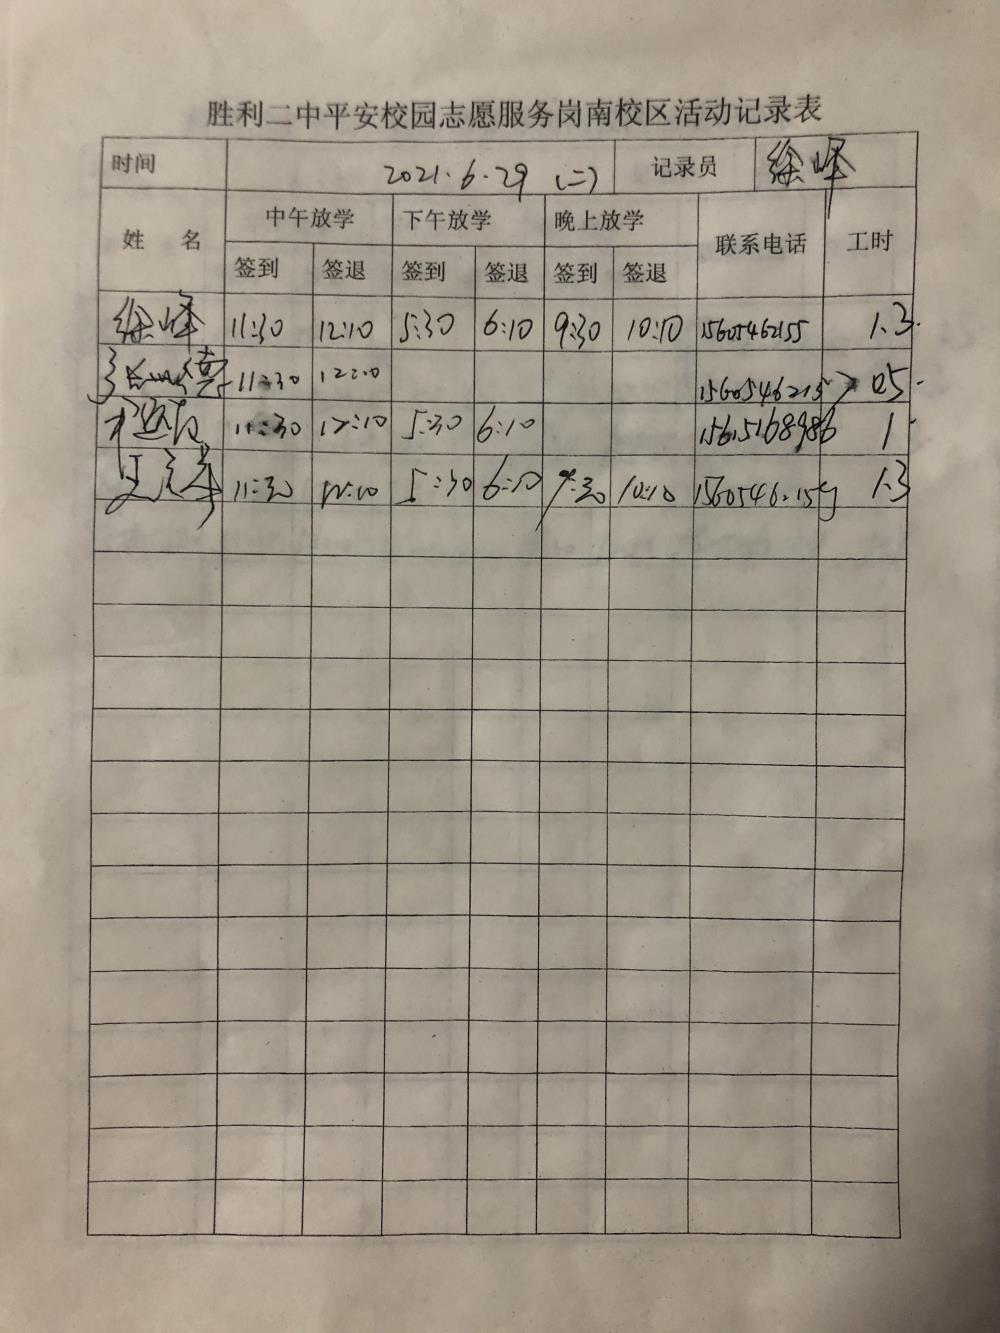 胜利二中平安校园志愿服务岗南校区活动记录表
时间 2021.6.29 (二) 记录员 徐峰
姓 名 中午放学 下午放学 晚上放学 联系电话 工时
签到 签退 签到 签退 签到 签退
徐峰 11:30 12:10 5:30 6:10 9:30 10:10 15605462155 1.3
11:30 12:10 05
11:30 12:10 5:30 6:10 15615168986 1
11:30 12:10 5:30 6:10 9:30 10:10 1.3